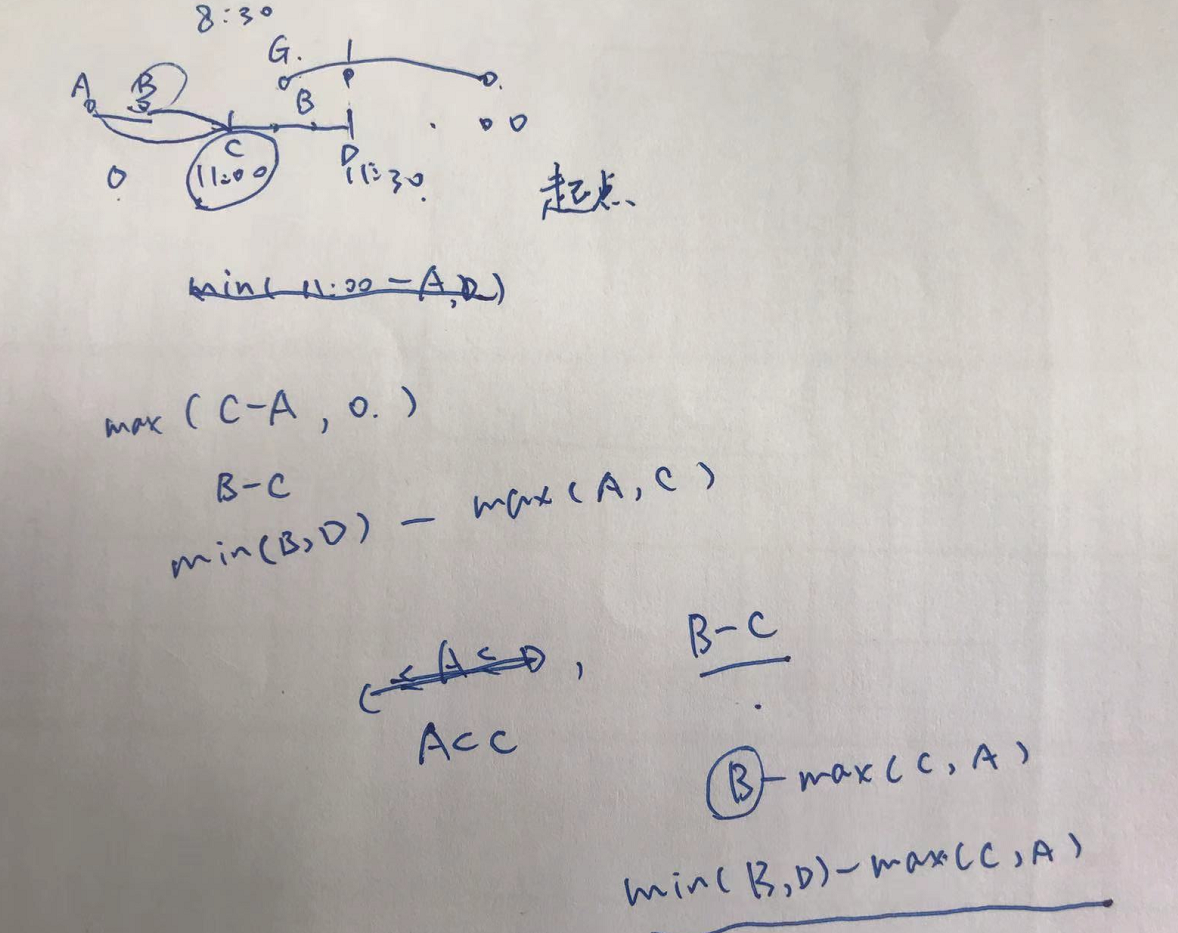 8:30
G.
A B
B
C D
11:00 11:30
起点
min( 11:00 - A, D )
max ( C-A , 0. )
B-C
min(B,D) - max(A,C)
C < A < D ,
B-C
A<C
B-max(C,A)
min(B,D)-max(C,A)